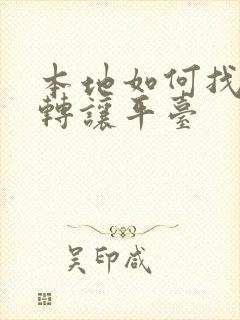 本地如何找
轉讓平臺
吴印咸